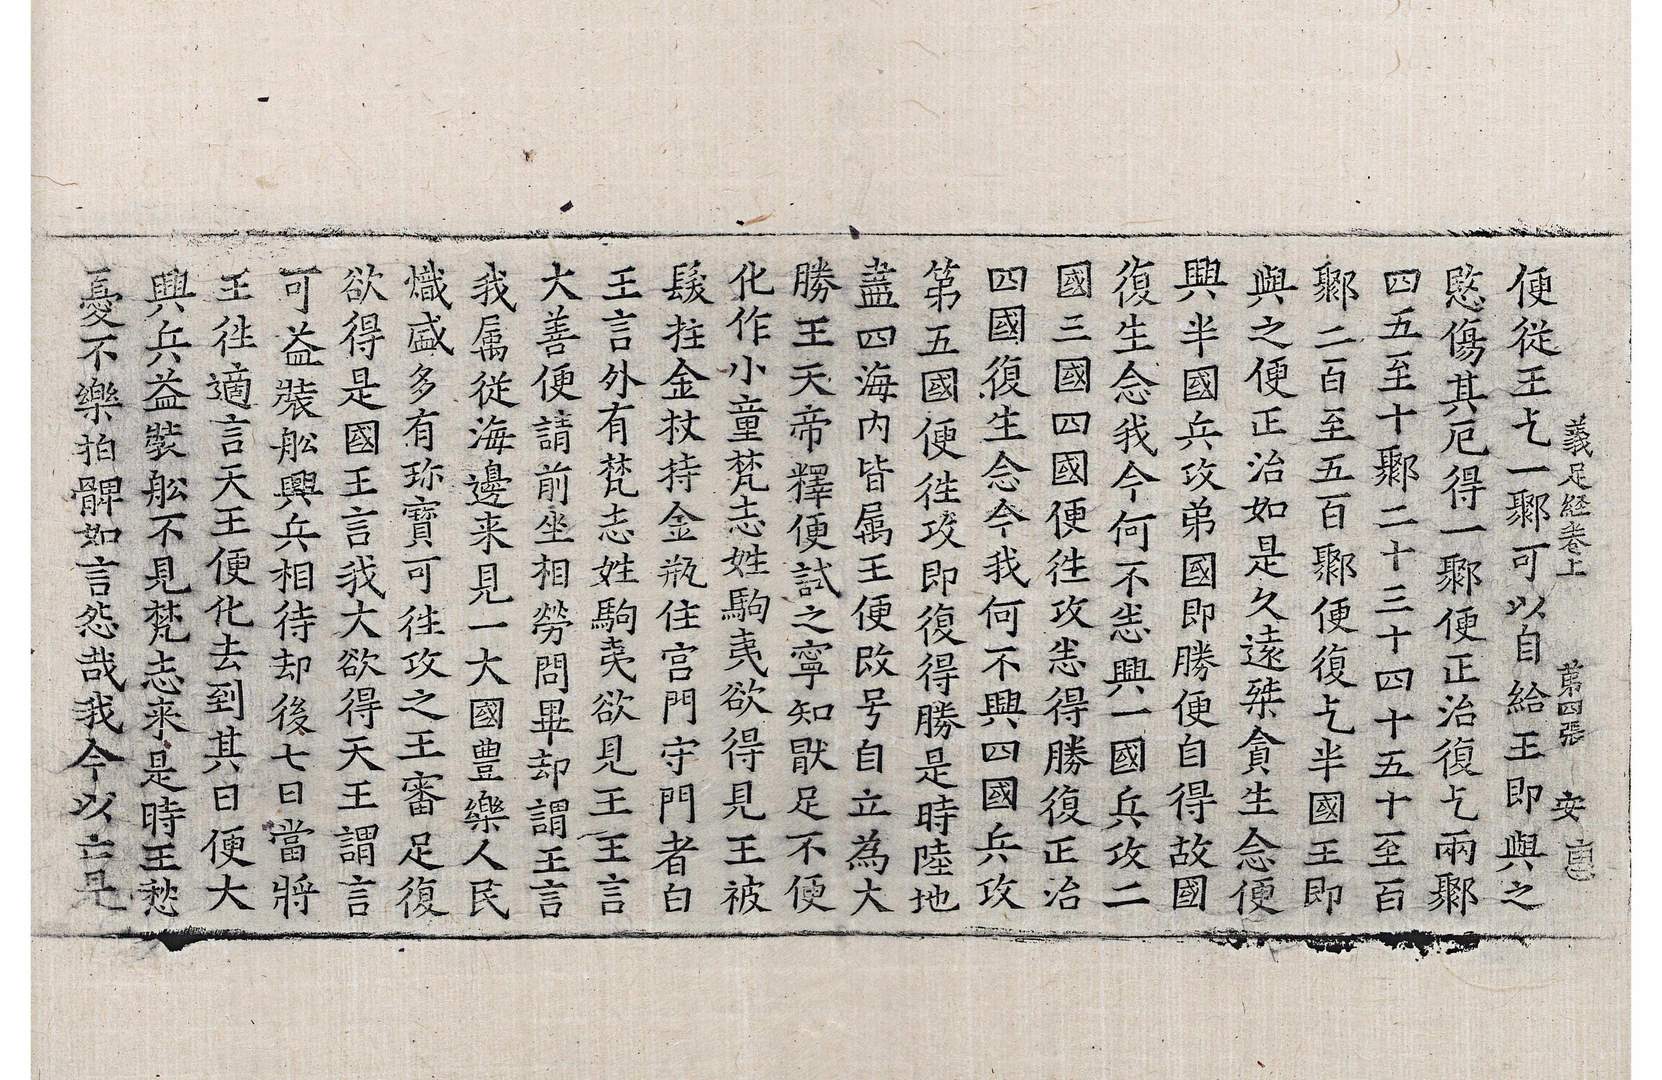 義足経卷上 苐四張 安
便從王乞一鄹可以自給王即與之
愍傷其厄得一鄹便正治復乞兩鄹
四五至十鄹二十三十四十五十至百
鄹二百至五百鄹便復乞半國王即
與之便正治如是久遠桀貪生念便
興半國兵攻弟國即勝便自得故國
復生念我今何不悉興一國兵攻二
國三國四國便往攻悉得勝復正治
四國復生念今我何不興四國兵攻
苐五國便往攻即復得勝是時陸地
盡四海内皆属王便改号自立為大
勝王天帝釋便試之寧知猒足不便
化作小童梵志姓駒夷欲得見王被
髮拄金杖持金瓶住宮門守門者白
王言外有梵志姓駒夷欲見王王言
大善便請前坐相勞問畢却謂王言
我属從海邊来見一大國豊樂人民
熾盛多有珎寶可往攻之王審足復
欲得是國王言我大欲得天王謂言
可益裝舩興兵相待却後七日當將
王徃適言天王便化去到其日便大
興兵益裝舩不見梵志来是時王愁
憂不樂拍髀如言怨哉我今以亡是